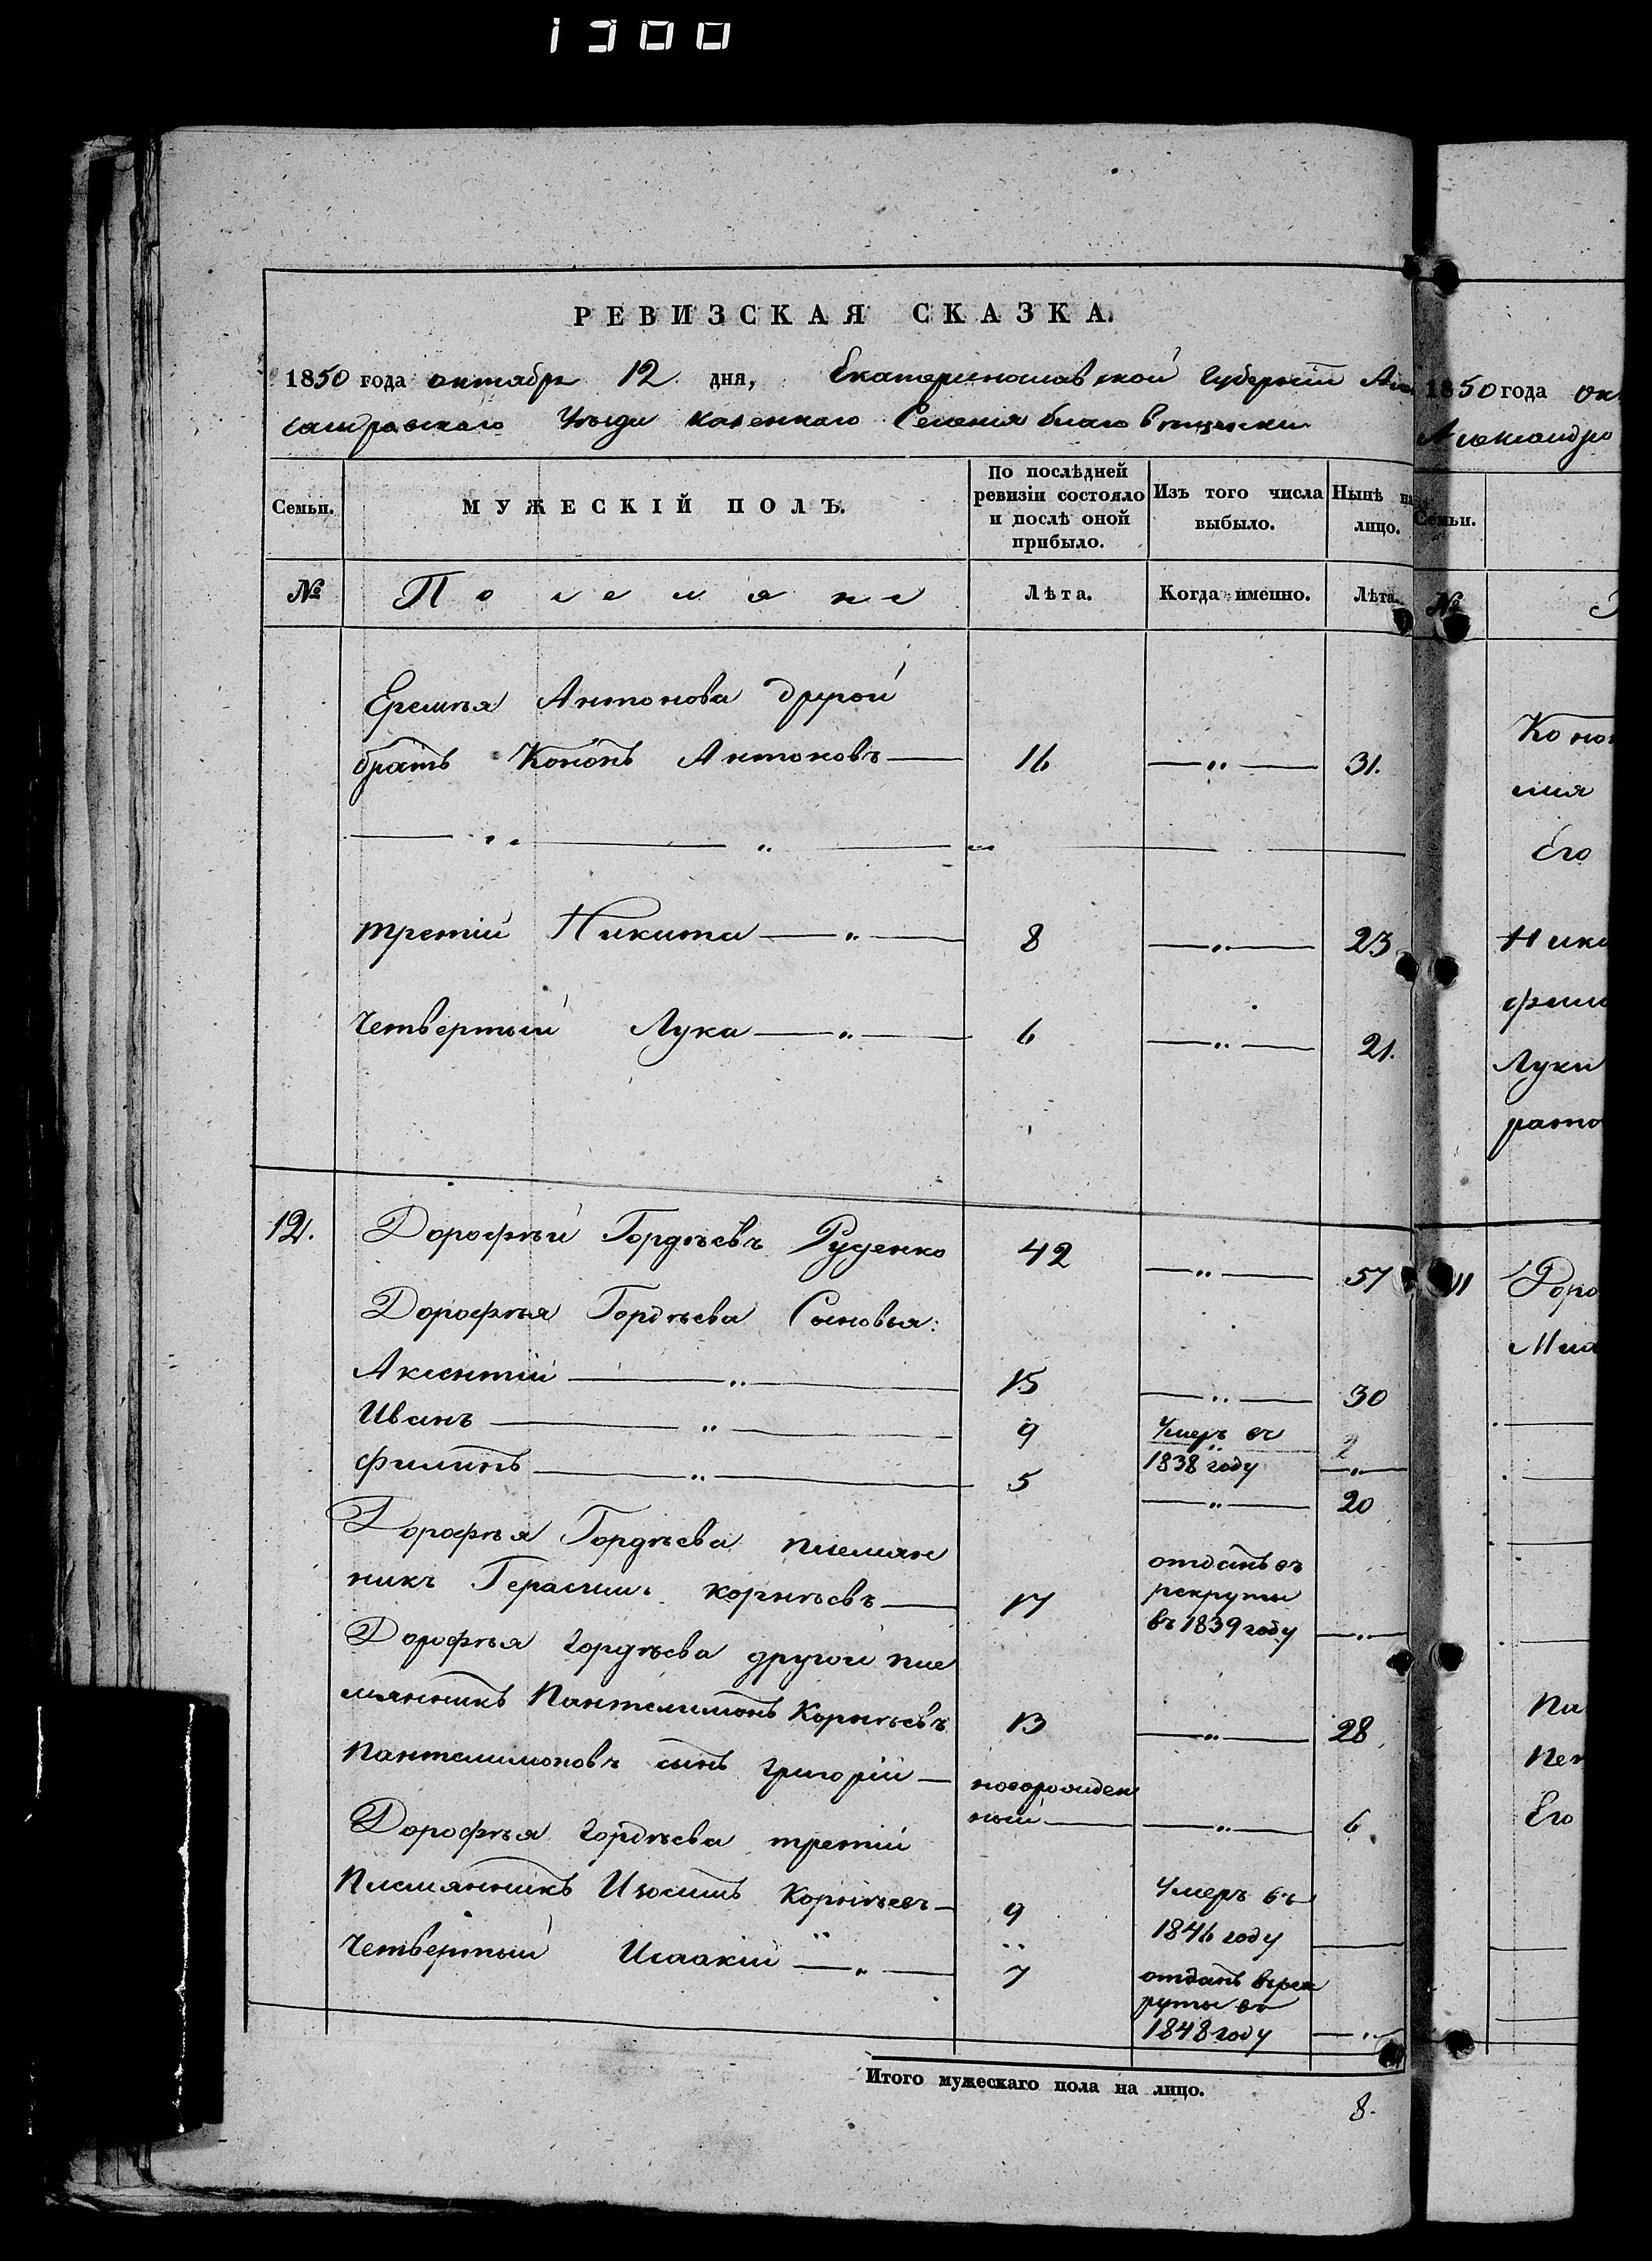 1300
РЕВИЗСКАЯ СКАЗКА.
1850 года октября 12 дня, Екатеринославской Губернии Алек
сандровского Уъзда казеннаго Селения благовъщенски
Семьи.
МУЖЕСКІЙ ПОЛЪ.
По послѣдней ревизіи состояло и послѣ оной прибыло.
Изъ того числа выбыло.
Нынѣ на лицо.
№
Поселяне
Лѣта.
Когда именно.
Лѣта.
Еремѣя Антонова другой
братъ Кононъ Антоновъ — 16 — „ — 31.
третій Никита — „ — 8 — „ — 23
Четвертый Лука — „ — 6 — „ — 21.
12. Дорофѣй Гордѣевъ Руденко 42 — „ — 57
Дорофѣя Гордѣева Сыновья:
Аксентій — „ — 15 — „ — 30
Иванъ — „ — 9 Умеръ въ 1838 году — „ —
Филипъ — „ — 5 — „ — 20
Дорофѣя Гордѣева племян
никъ Герасимъ Корнѣевъ — 17 отданъ въ рекруты въ 1839 году — „ —
Дорофѣя Гордѣева другой пле
мянникъ Пантелимонъ Корнѣевъ 13 — „ — 28
Пантелимоновъ сынъ Григорій — новорожден
ный — „ — 6
Дорофѣя Гордѣева третій
Племянникъ Изосимъ Корнѣевъ — 9 Умеръ въ 1846 году —
Четвертый Исаакій — „ — 7 отданъ врек
руты въ
1848 году — „ —
Итого мужескаго пола на лицо.
8.
1850 года ок
Александро
Семьи.
№
Конон
Его
Ники
Луки
11 Доро
Па
Его